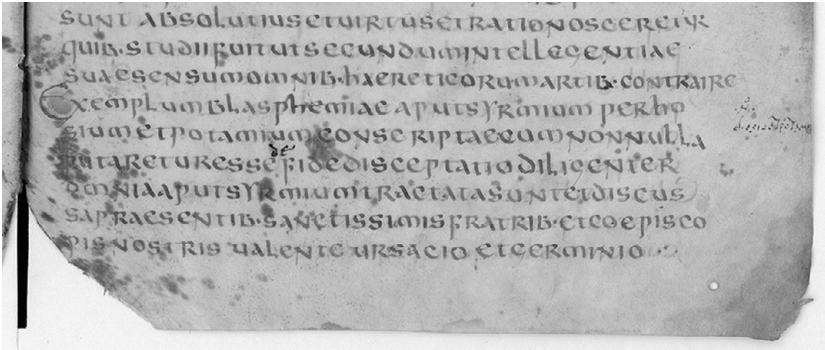 suntabsolutiusetuirtusetrationosceretur
quib·studiifuitutsecundumintellegentiae
suaesensumomnib·haereticorumartib·contraire
exemplumblasphemiae aputsyrmium perho
siumetpotamiumconscriptaecumnonnulla
putareturesse de fidedisceptatiodiligenter
omniaaputsyrmiumtractatasuntetdiscus
sapraesentib·sanctissimisfratrib·etcoepisco
pisnostris ualente ursacio etgerminio